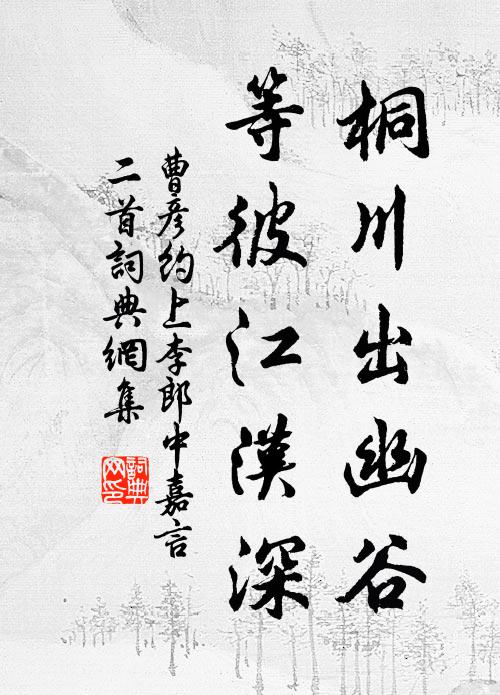 桐川出幽谷
等彼江漢深
曹彥約上李郎中嘉言
二首詞典網集
詞典
网印